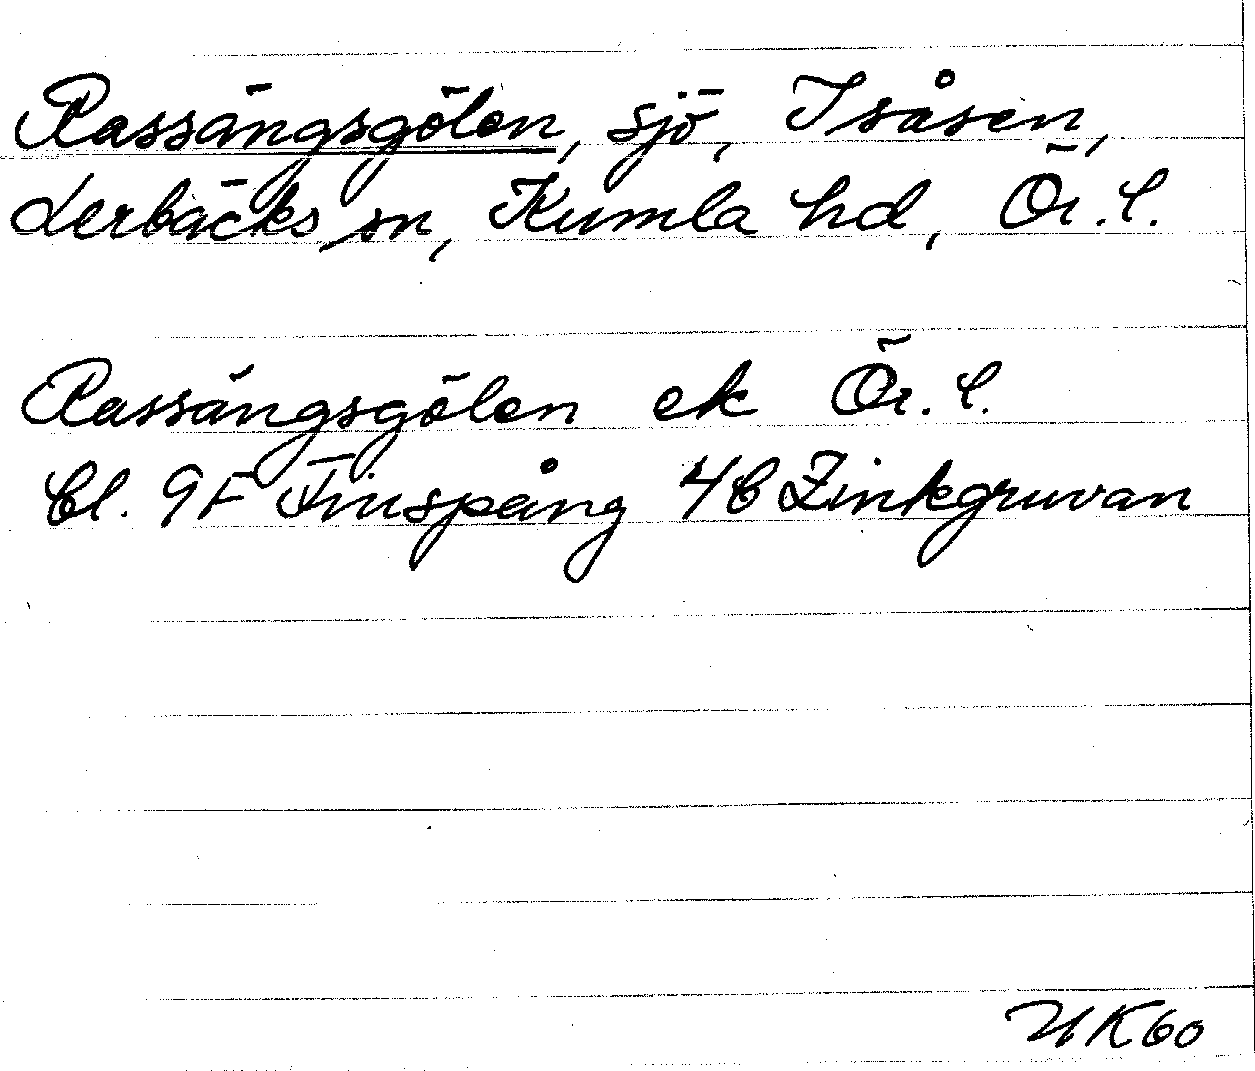 Rassängsgölen, sjö, Isåsen,
Lerbäcks sn, Kumla hd, Ör. l.
Rassängsgölen ek Ör. l.
bl. 9F Finspång 4b Zinkgruvan
HK60